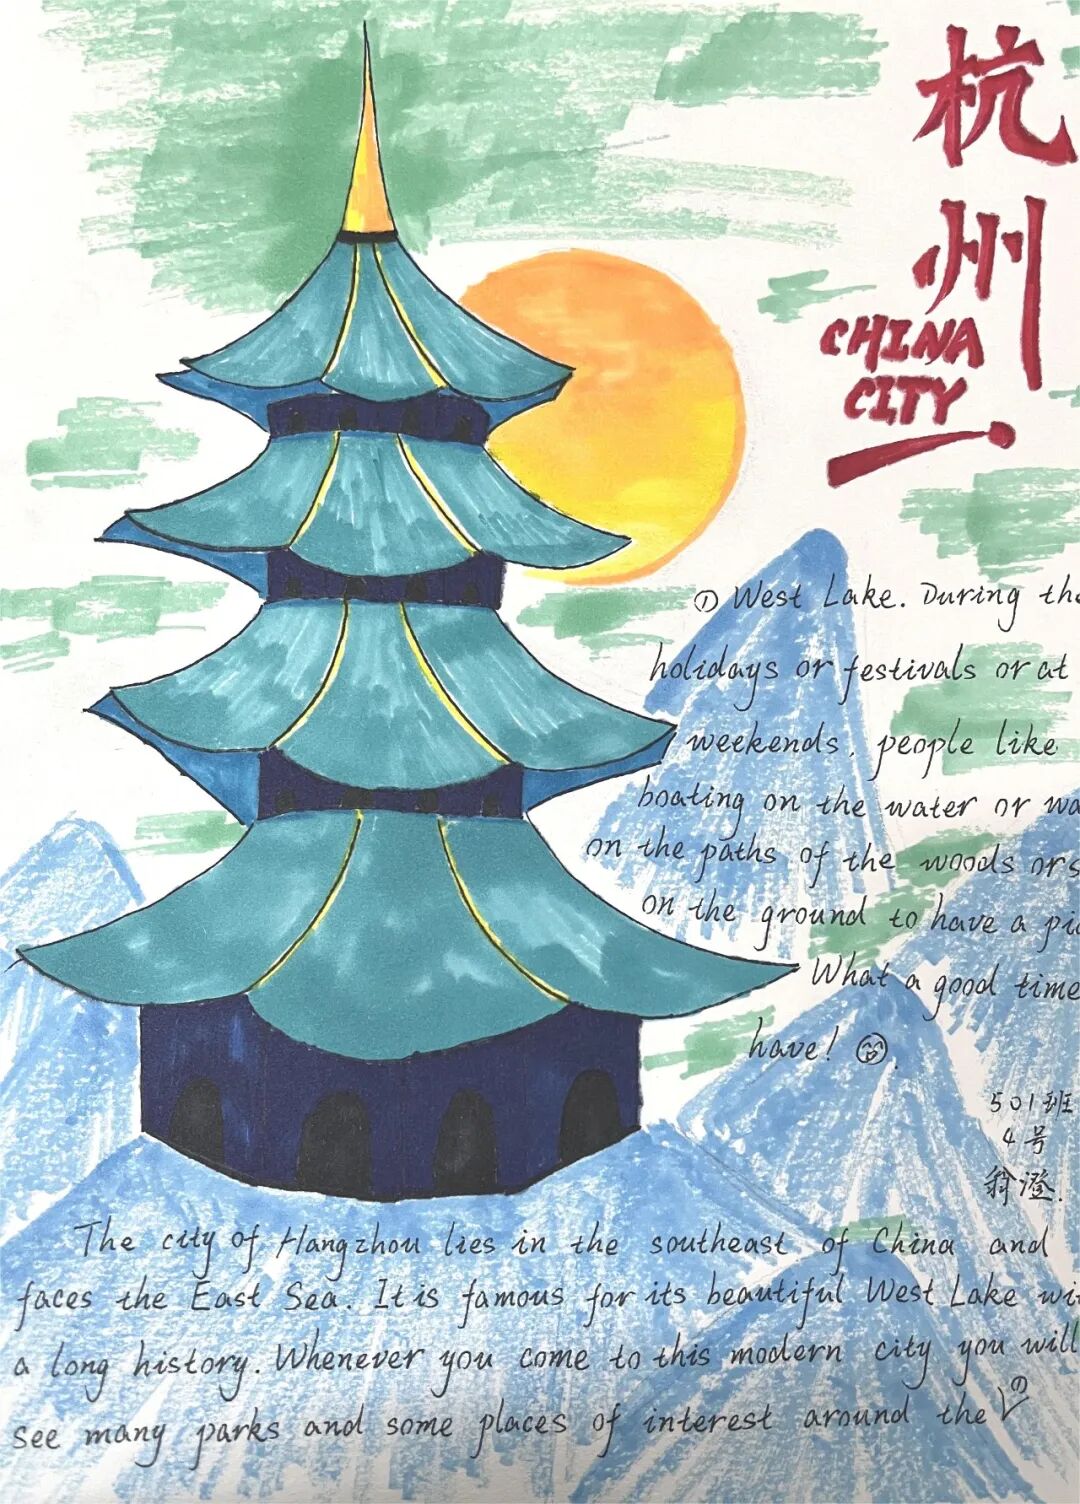 杭州
CHINA
CITY
① West Lake. During the
holidays or festivals or at
weekends, people like
boating on the water or wa
on the paths of the woods or s
on the ground to have a pic
What a good time
have!
501班
4号
翁澄.
The city of Hangzhou lies in the southeast of China and
faces the East Sea. It is famous for its beautiful West Lake wit
a long history. Whenever you come to this modern city you will
see many parks and some places of interest around the ①